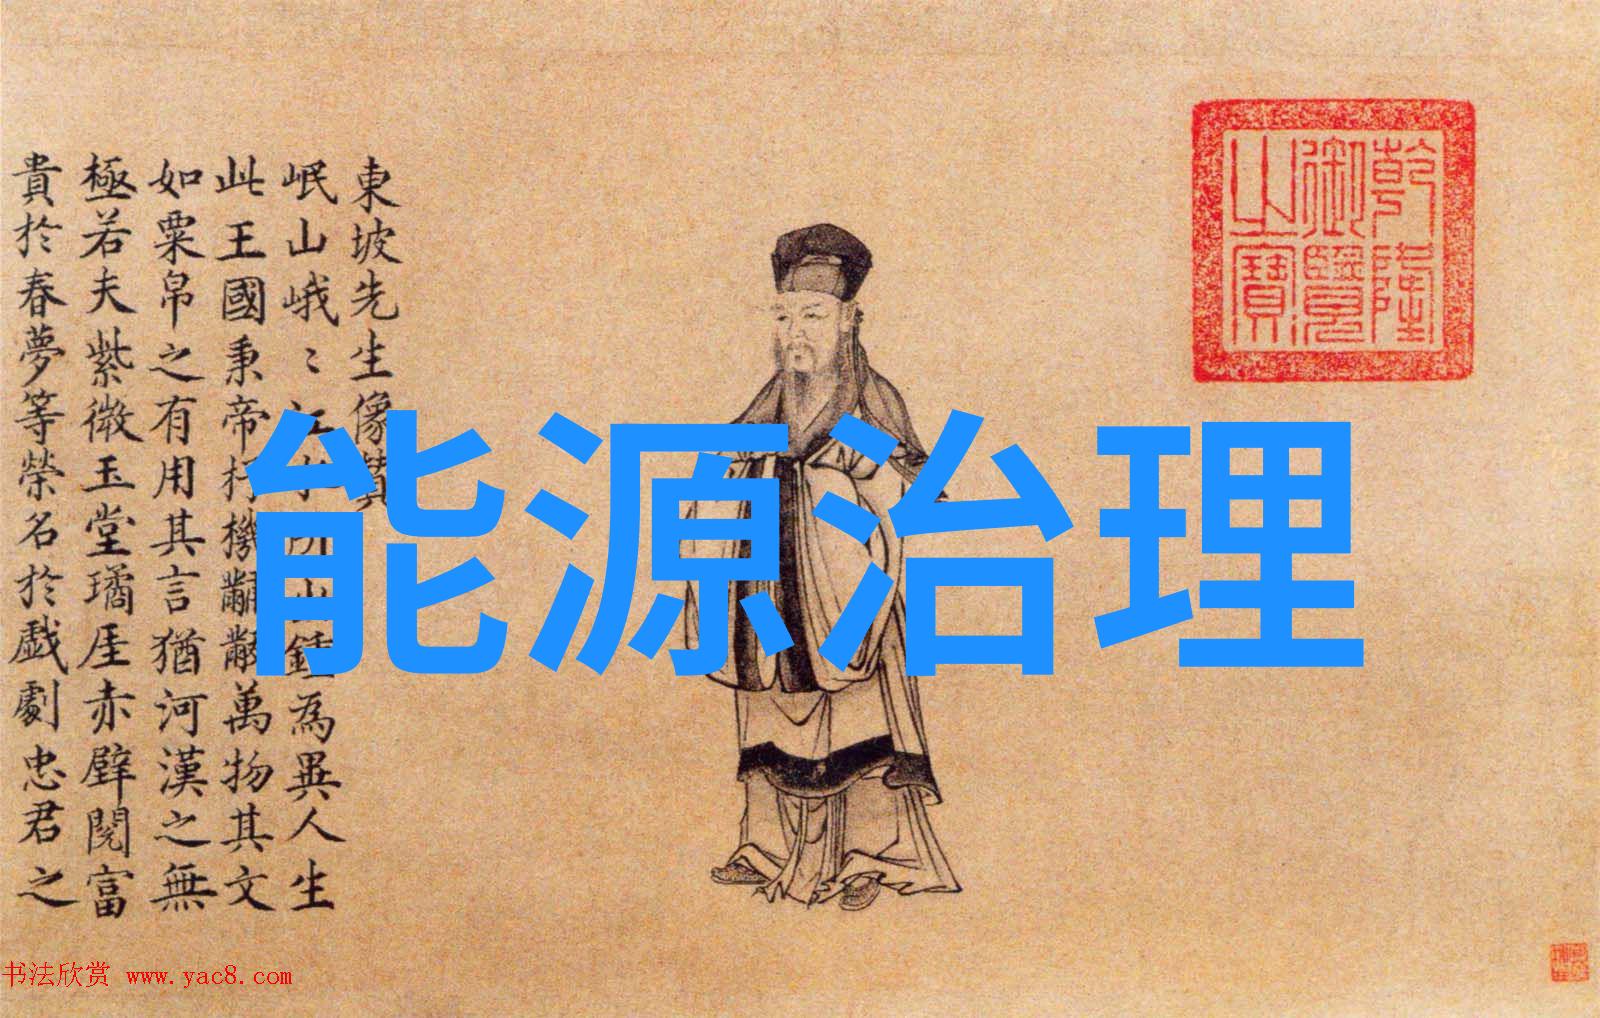 能源治理
東坡先生像
岷山峨〻江水所出鍾為異人生
此王國秉帝杼機黼黻萬物其文
如粟帛之有用其言猶河漢之無
極若夫紫微玉堂璚厓赤壁閱富
貴於春夢等榮名於戲劇忠君之
乾隆
御覽
之寶
书法欣赏 www.yac8.com